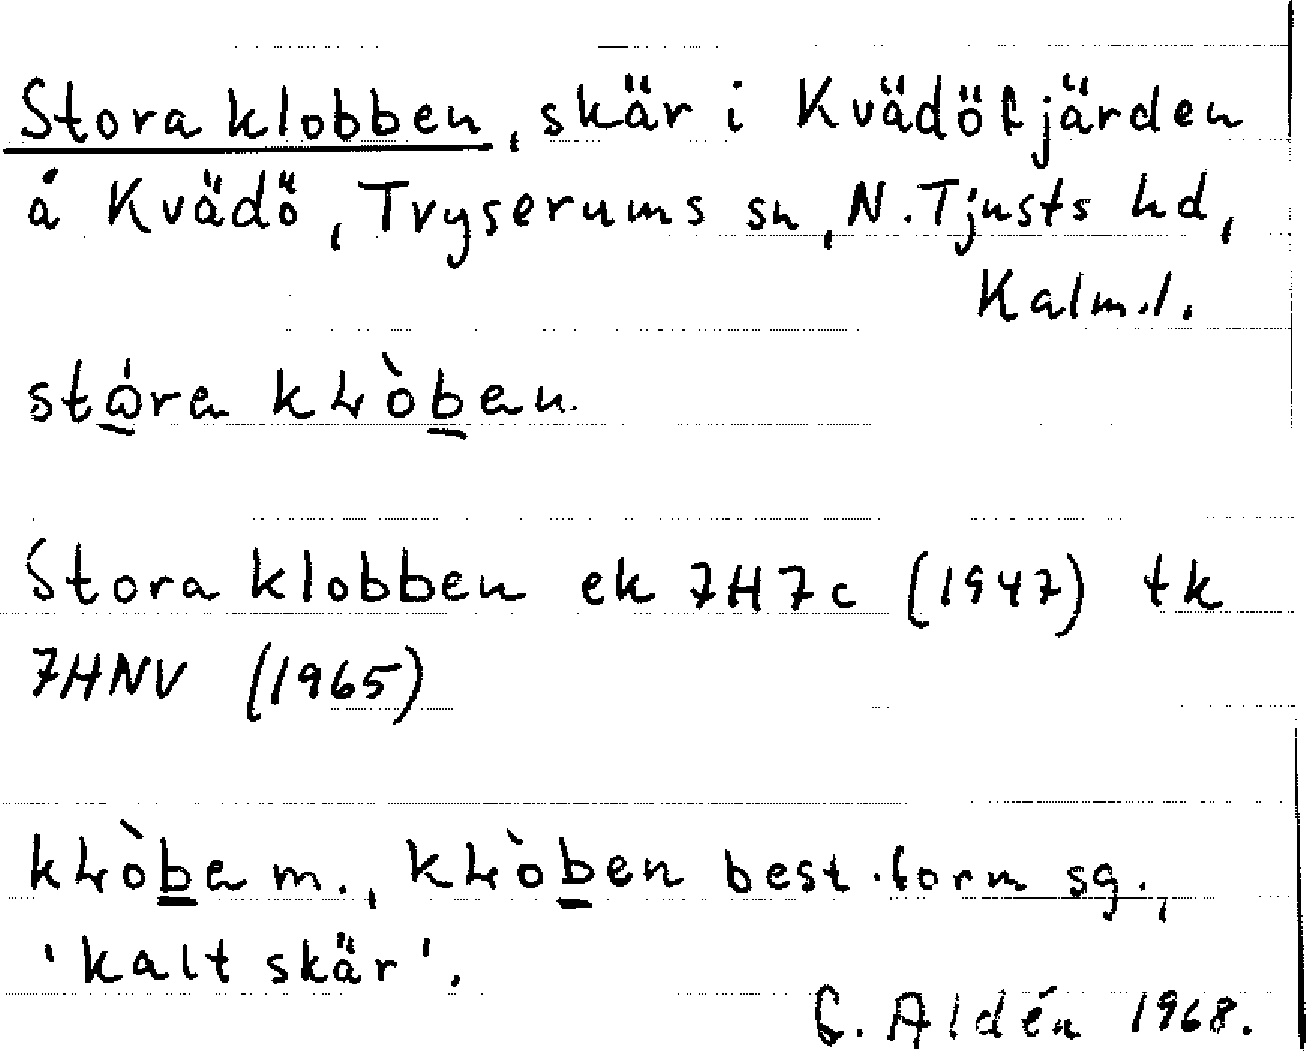 Stora klobben, skär i Kvädöfjärden
å Kvädö, Tryserums sn, N. Tjusts hd,
Kalm.l.
Stora klobben ek 7H7c (1947) tk
7HNV (1965)
m., best. form sg.,
'kalt skär'.
G. Aldén 1968.